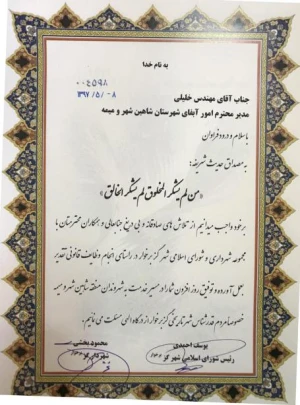 به نام خدا
۰۰۴۵۹۸
۱۳۹۷/۵/۰۸
جناب آقای مهندس خلیلی
مدیر محترم امور آبفای شهرستان شاهین شهر و میمه
با سلام و درود فراوان
به مصداق حدیث شریفه :
«من لم یشکر المخلوق لم یشکر الخالق»
بر خود واجب میدانیم از تلاش های صادقانه و بی دریغ جنابعالی و همکاران محترمتان با
مجموعه شهرداری و شورای اسلامی شهر گز برخوار در راستای انجام وظائف قانونی تقدیر
بعمل آورده و توفیق روز افزون شما را در مسیر خدمت به شهروندان منطقه شاهین شهر و میمه
خصوصا مردم قدرشناس شهر تاریخی گز برخوار از درگاه الهی مسئلت می نمائیم.
یوسف احمدی
رئیس شورای اسلامی شهر گز
محمود بخشی
شهردار گز